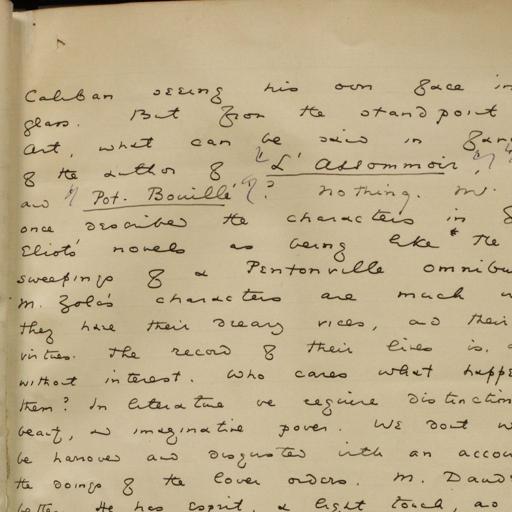 Caliban seeing his own face in
glass. But from the standpoint
Art, what can be said in
of the author of "L'Assommoir,
and "Pot-Bouille"? Nothing. Mr.
once described the characters in
Eliot's novels as being like the
sweepings of a Pentonville omnibu
M. Zola's characters are much
they have their dreary vices, and their
virtues. The record of their lives is
without interest. Who cares what happe
them? In literature we require distinction
beauty, and imaginative power. We don't
be harrowed and disgusted with an accou
the doings of the lower orders. M. Daud
better. He has esprit, a light touch, and